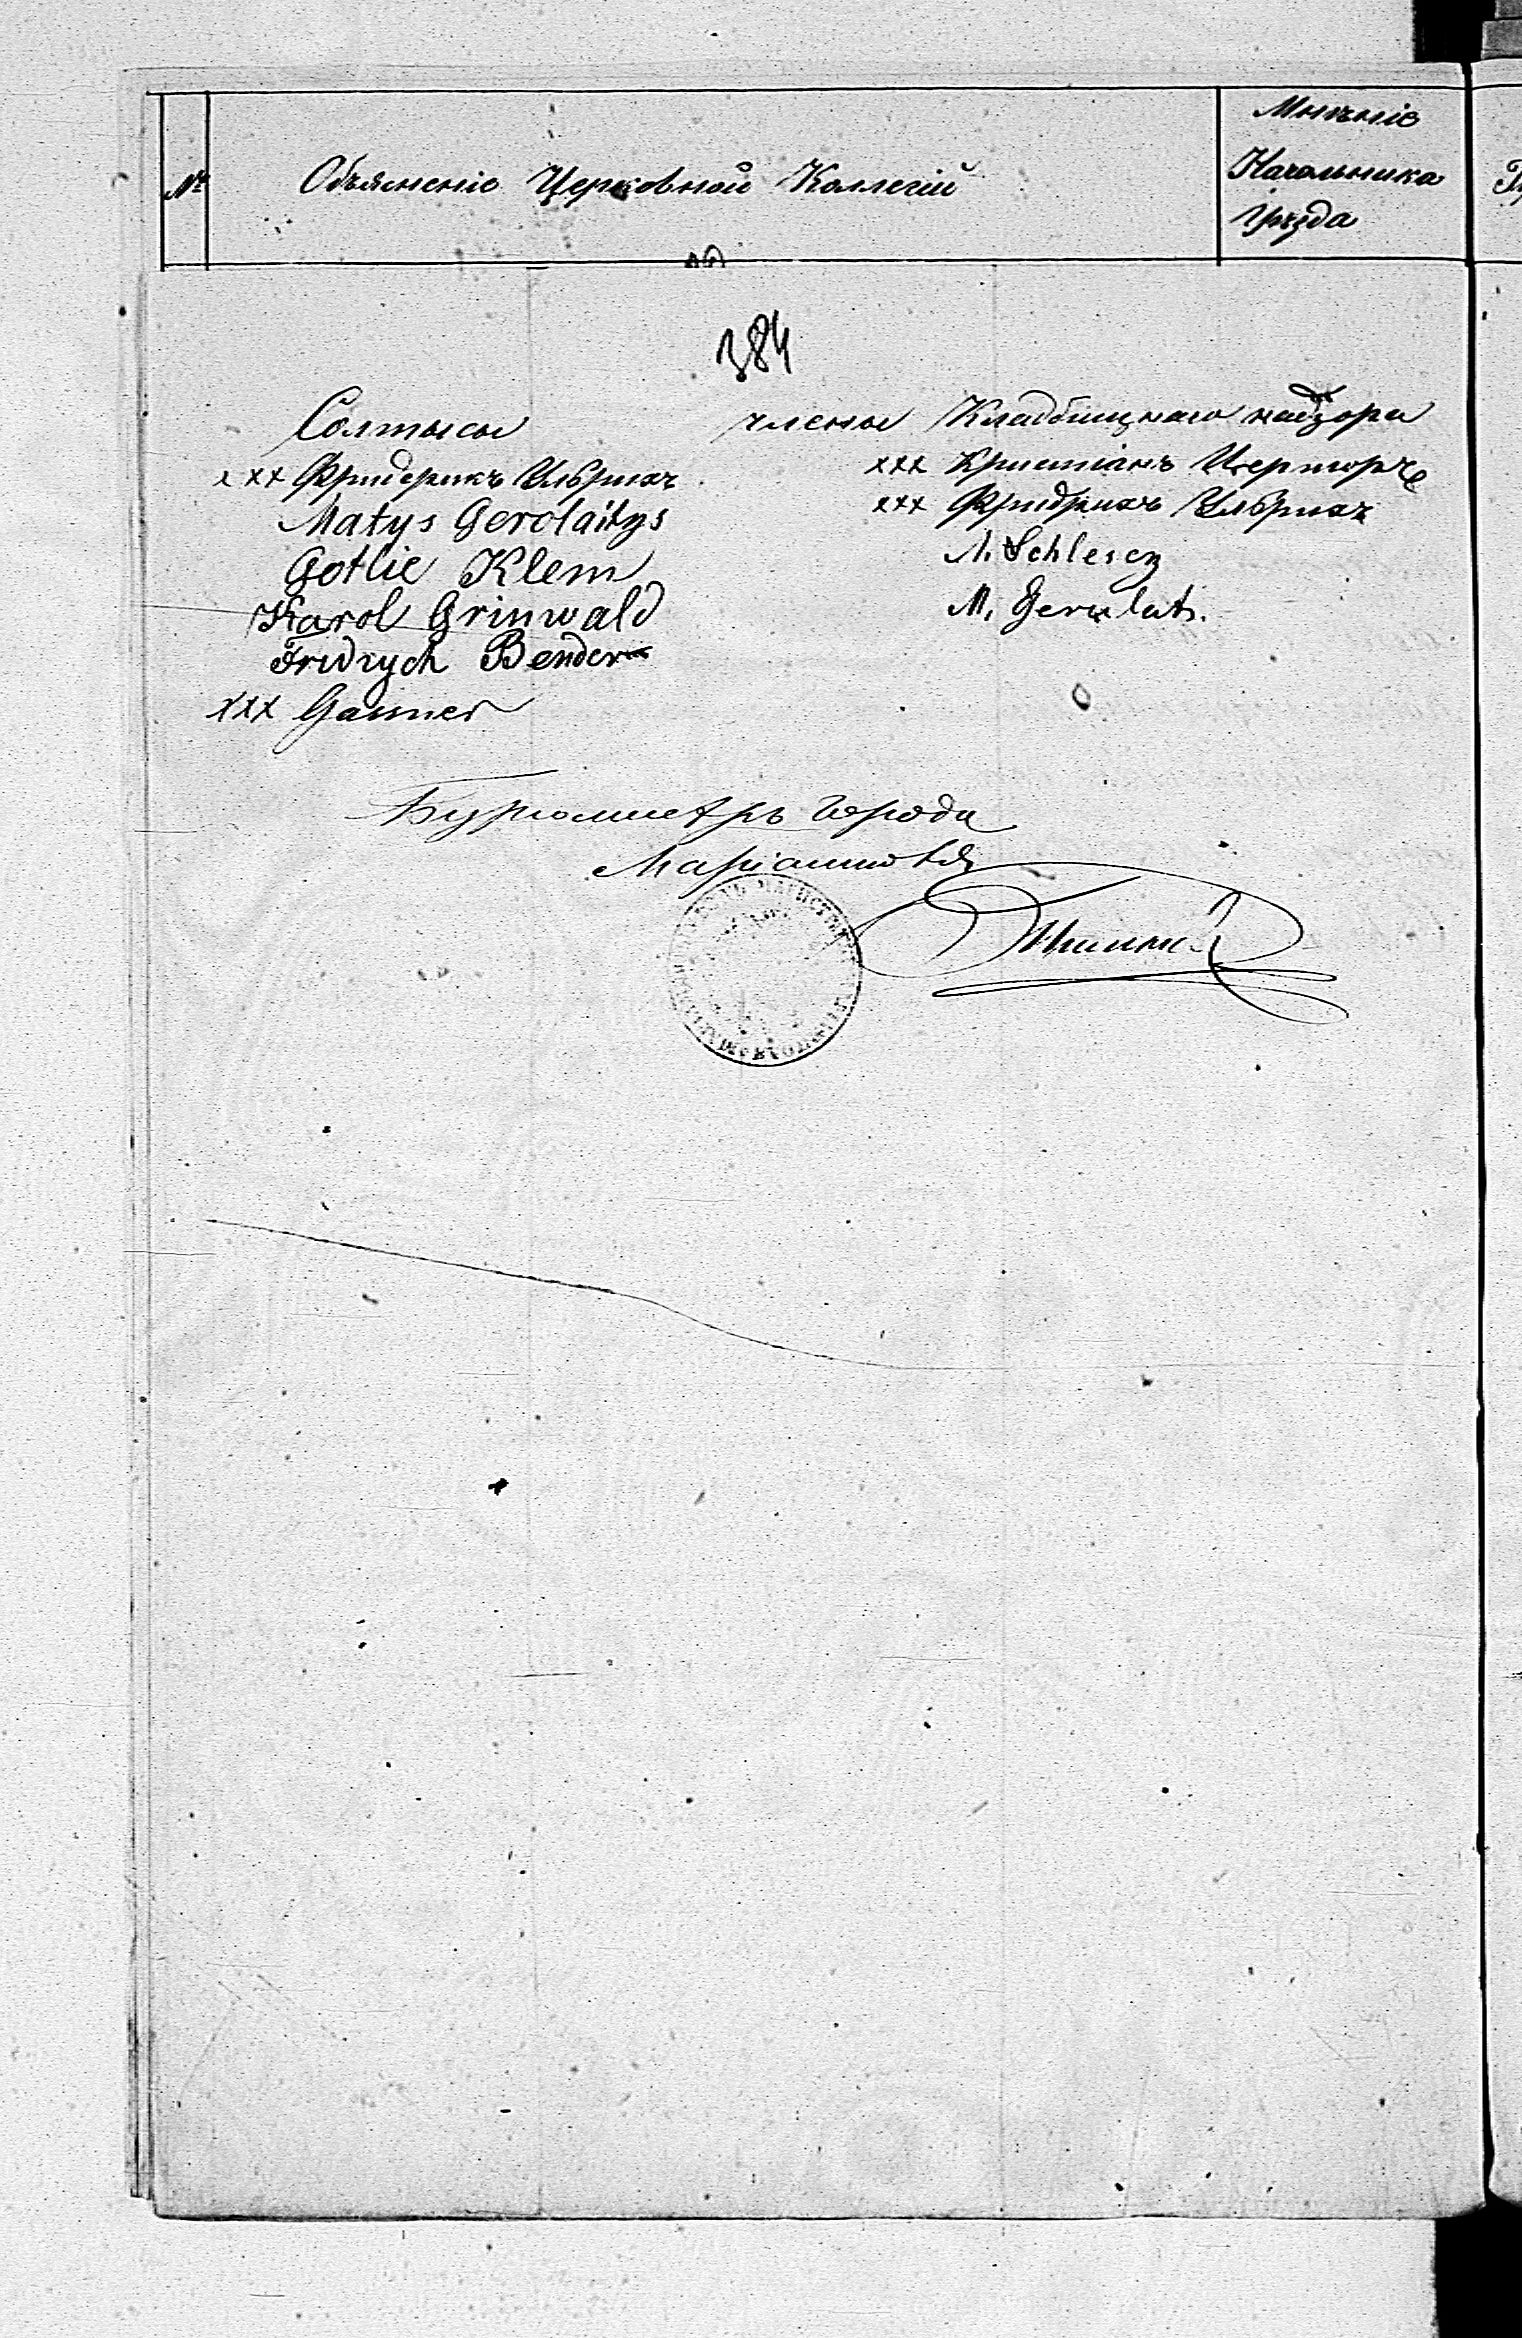 №
Объясненіе Церковной Коллегіи
Мнѣніе
Начальника
Уѣзда
384
Солтысы
xxx Фридерикъ Ульрихъ
Matys Gerolaitys
Gotlie Klem
Karol Grinwald
Fridrych Bender
xxx Gawner
члены Кладбищнаго надзора
xxx Христіанъ
xxx Фридрихъ Ульрихъ
M. Schlescz
M. Gerulat.
Бургомистръ города
Маріамполя